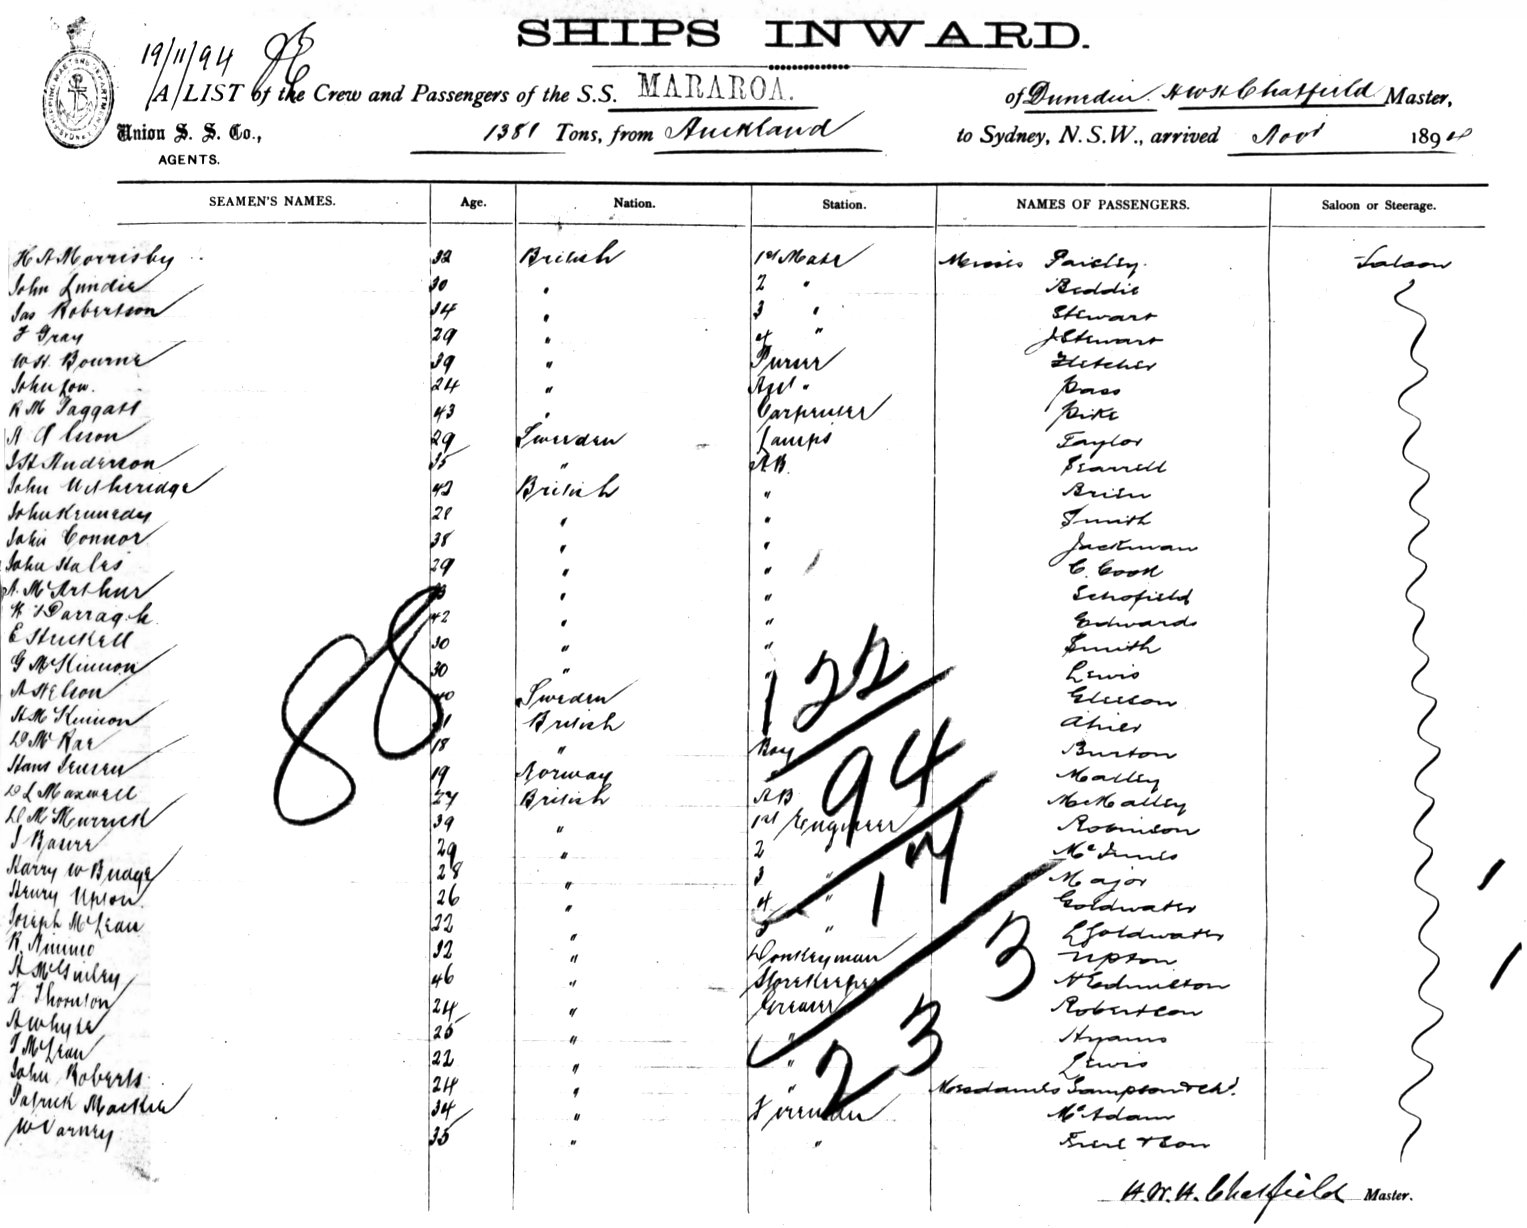 SHIPS INWARD.
19/11/94
A LIST of the Crew and Passengers of the S.S. MARAROA. of Dunedin. H W H Chatfield Master,
Union S. S. Co., 1381 Tons, from Auckland to Sydney, N.S.W., arrived Novr 1894
AGENTS.
SEAMEN'S NAMES. Age. Nation. Station. NAMES OF PASSENGERS. Saloon or Steerage.
H A Morrisby 32 British 1st Mate Misses Paisley. Saloon
John Lundie 30 " 2 " Beddie
Jas Robertson 34 " 3 " Stewart
F Gray 29 " 4 " J Stewart
W H Bourne 39 " Purser Fletcher
John Low. 24 " Asst " Pass
R M Taggatt 43 " Carpenter Pike
A Olsson 29 Sweden Lamps Taylor
J H Anderson 35 " AB.
John Witheridge 42 British " Brien
John Kennedy 28 " " Smith
John Connor 38 " " Jackman
John Hales 29 " " C. Cook
A. McArthur " " Schofield
Darragh 42 " " Edwards
E Stuckell 30 " " Smith
G McKinnon 30 " " Lewis
A Nelson 40 Sweden Gleeson
H McKinnon British
D McRae 18 " Boy Burton
Hans Jensen 19 Norway Malley
D L Maxwell 27 British AB McMalley
D McMurrick 39 " 1st Engineer Robinson
J Bower 29 " 2 McInnes
Harry W Budge 28 3 " Major
Henry Upton 26 " 4 " Goldwater
Joseph McLean 22 " 5 " L Goldwater
R. Nimmo 32 " Donkeyman Upton
H McGinley 46 " Storekeeper H Edmilson
F Thornton 24 " Greaser Robertson
A Whyte 25 " " Hyams
T McLean 22 " " Lewis
John Roberts 24 " " Mesdames Sampson & Chd.
Patrick Mackie 34 " Fireman McAdam
W Varney 35 " " & Son
88
122
94
17
3
23
H. W. H. Chatfield Master.